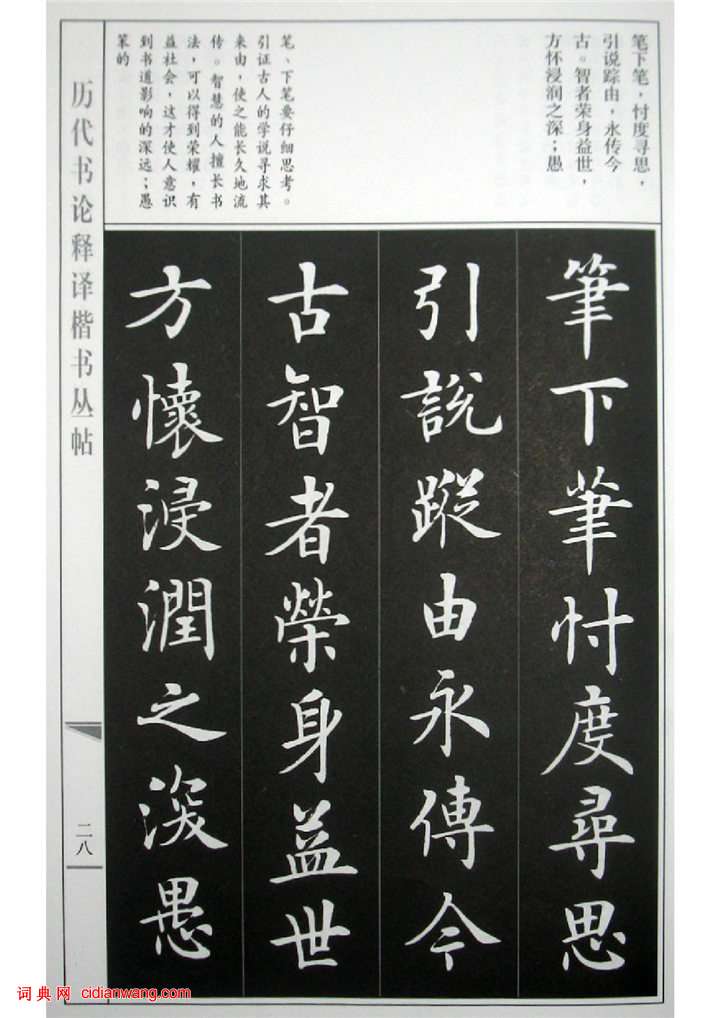 笔下笔，忖度寻思，
引说踪由，永传今
古。智者荣身益世，
方怀浸润之深；愚
笔、下笔要仔细思考。
引证古人的学说寻求其
来由，使之能长久地流
传。智慧的人擅长书
法，可以得到荣耀，有
益社会，这才使人意识
到书道影响的深远；愚
笨的
筆下筆忖度尋思
引說蹤由永傳今
古智者榮身益世
方懷浸潤之深愚
历代书论释译楷书丛帖
二八
词典网 cidianwang.com